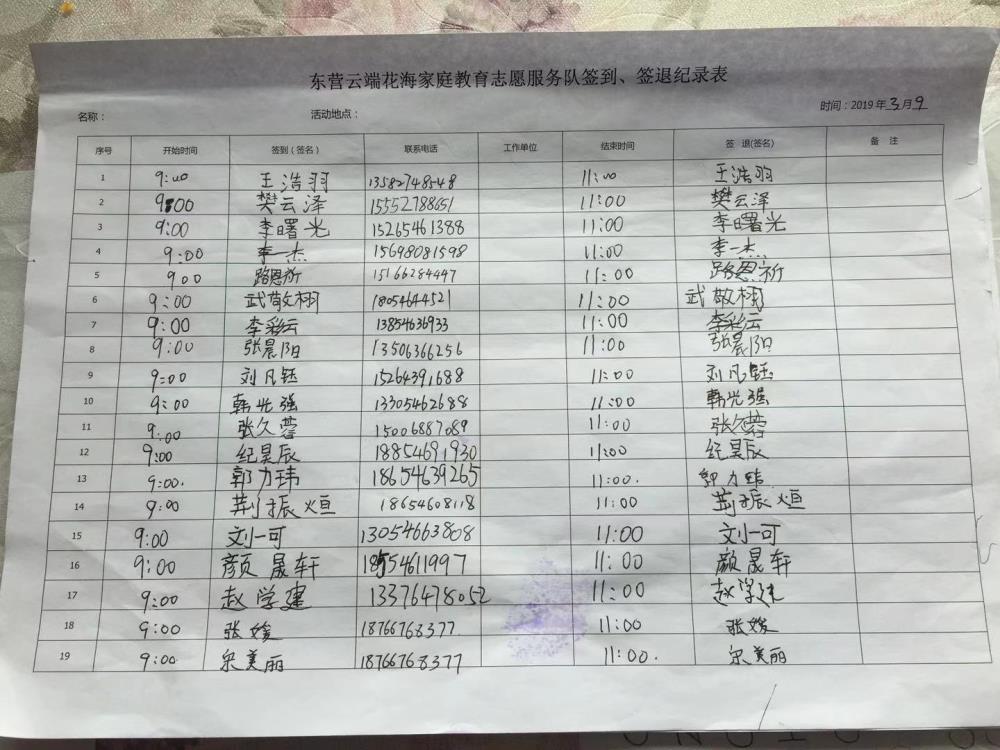 东营云端花海家庭教育志愿服务队签到、签退纪录表
名称： 活动地点： 时间：2019年3月9
序号 开始时间 签到（签名） 联系电话 工作单位 结束时间 签 退(签名) 备 注
1 9:00 王浩羽 13582748548 11:00 王浩羽
2 9:00 樊云泽 15552788651 11:00 樊云泽
3 9:00 李曙光 15265461388 11:00 李曙光
4 9:00 李一杰 15698081598 11:00 李一杰
5 900 路恩祈 15166284447 11:00 路恩祈
6 9:00 武敬栩 18054644521 11:00 武敬栩
7 9:00 李彩云 13854636933 11:00 李彩云
8 9:00 张晨阳 13506366256 11:00 张晨阳
9 9:00 刘凡钰 15264391688 11:00 刘凡钰
10 9:00 韩光强 13305462688 11:00 韩光强
11 9:00 张久蓉 15006887089 11:00 张久蓉
12 9:00 纪昊辰 18854691930 11:00 纪昊辰
13 9:00. 郭力玮 18654639265 11:00. 郭力玮
14 9:00 荆振烜 18654608118 11:00 荆振烜
15 9:00 刘一可 13054663808 11:00 刘一可
16 9:00 颜晟轩 18554611997 11:00 颜晟轩
17 9:00 赵学建 13376478052 11:00 赵学建
18 9:00 张媛 18766768377 11:00 张媛
19 9:00 美丽 18766768377 11:00. 美丽